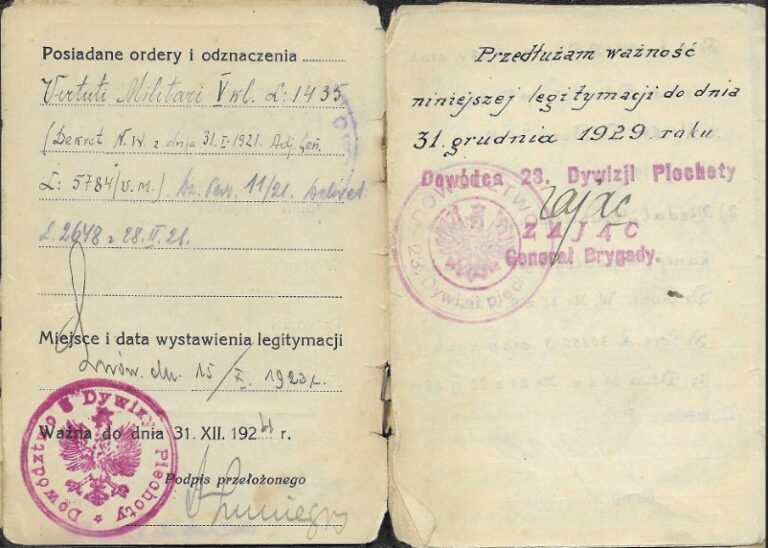 Posiadane ordery i odznaczenia
Virtuti Militari V kl. L: 1435
(Dekret N.W. z dnia 31.I.1921. Adj. Gen.
L: 5784/V.M.) Dz. Pers. 11/21. Dekret
L. 2648 z 28.II.21.
Miejsce i data wystawienia legitymacji
Lwów. dn. 15/X. 1923 r.
Ważna do dnia 31. XII. 1924 r.
Podpis przełożonego
Dowództwo 5 Dywizji Piechoty
Przedłużam ważność
niniejszej legitymacji do dnia
31. grudnia 1929. roku
Dowódca 23. Dywizji Piechoty
Zając
ZAJĄC
Generał Brygady.
DOWÓDZTWO 23. Dywizji piechoty